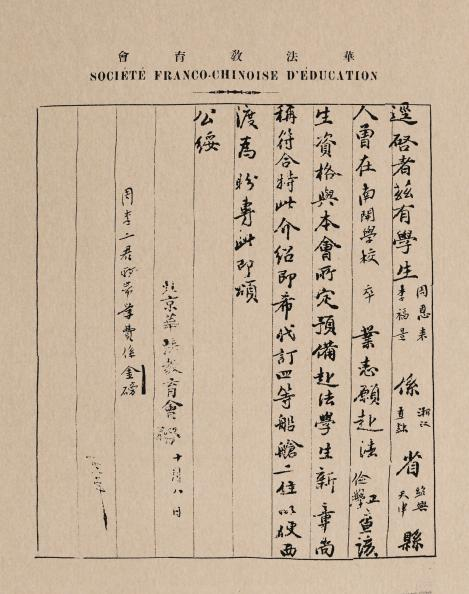 華法教育會
SOCIÉTÉ FRANCO-CHINOISE D'ÉDUCATION
逕啓者茲有學生周恩来李福景係浙江直隸省紹興天津縣
人曾在南開學校卒業志願赴法工儉學查該
生資格與本會所定預備赴法學生新章尚
稱符合特此介紹即希代訂四等船艙二位以便西
渡為盼專此即頌
公綏
北京華法教育會 十月八日
周李二君所帶學費係金磅